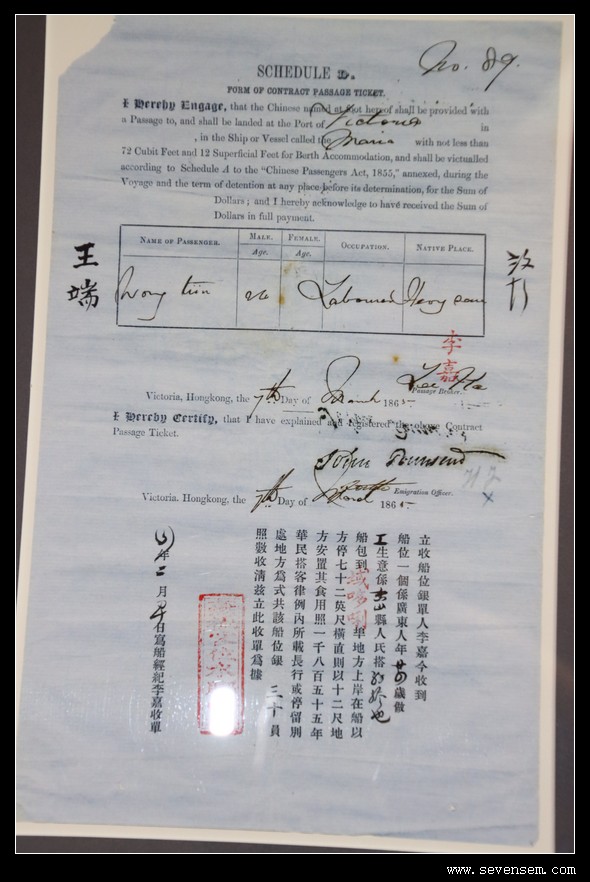 No. 89.
SCHEDULE D.
FORM OF CONTRACT PASSAGE TICKET.
I Hereby Engage, that the Chinese named at foot hereof shall be provided with
a Passage to, and shall be landed at the Port of Victoria in
, in the Ship or Vessel called the Maria with not less than
72 Cubit Feet and 12 Superficial Feet for Berth Accommodation, and shall be victualled
according to Schedule A to the "Chinese Passengers Act, 1855," annexed, during the
Voyage and the term of detention at any place before its determination, for the Sum of
Dollars; and I hereby acknowledge to have received the Sum of
Dollars in full payment.
NAME OF PASSENGER. MALE. FEMALE. OCCUPATION. NATIVE PLACE.
Age. Age.
王端
Wong 26 Labourer
李嘉
Passage Broker.
Victoria, Hongkong, the 7th Day of March 1865
I Hereby Certify, that I have explained and registered the above Contract
Passage Ticket.
John Townsend
Emigration Officer.
Victoria, Hongkong, the 7th Day of March 1865
立收船位銀單人李嘉今收到
船位一個係廣東人年廿四歲做
工生意係 縣人氏搭
船包到域哆唎埠地方上岸在船以
方停七十二英尺橫直則以十二尺地
方安置其食用照一千八百五十五年
華民搭客律例內所載長行或停留別
處地方爲式共該船位銀三十員
照數收清茲立此收單爲據
年二月 日寫船經紀李嘉收單
www.sevensem.com